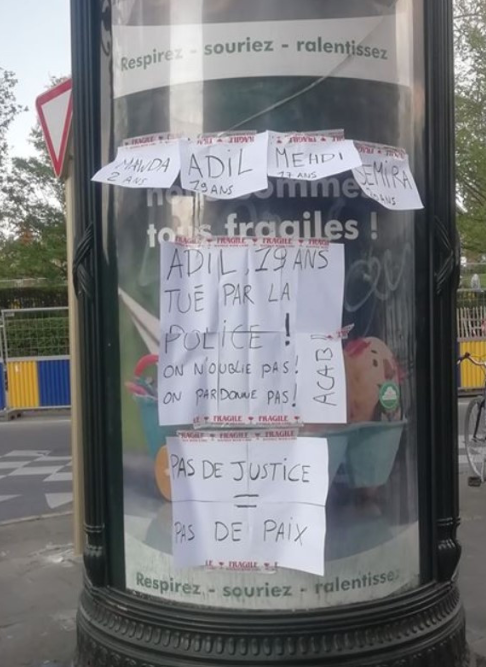 Respirez - souriez - ralentissez
FRAGILE FRAGILE FRAGILE
MAWDA
2 ANS
ADIL
19 ANS
MEHDI
17 ANS
SEMIRA
ANS
sommes
tous fragiles !
FRAGILE FRAGILE FRAGILE
ADIL, 19 ANS
TUÉ PAR LA
POLICE !
ON N'OUBLIE PAS!
ON PARDONNE PAS!
ACAB!
FRAGILE FRAGILE
FRAGILE FRAGILE
PAS DE JUSTICE
=
PAS DE PAIX
FRAGILE
Respirez - souriez - ralentissez